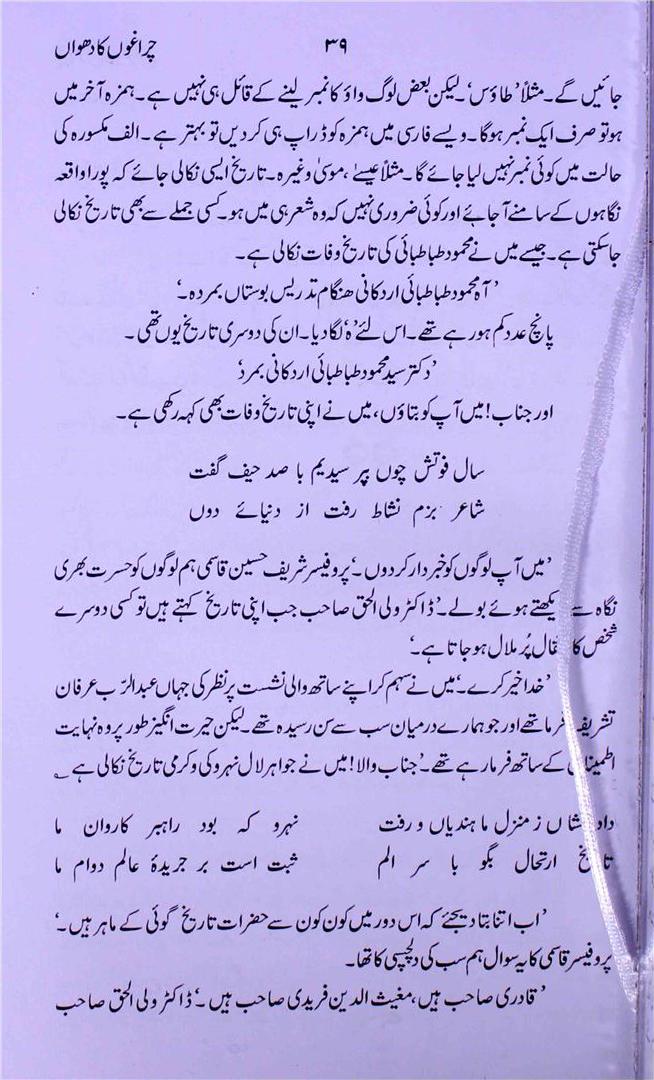 چراغوں کا دھواں ۳۹
جائیں گے۔ مثلاً 'طاؤس'۔ لیکن بعض لوگ واؤ کا نمبر لینے کے قائل ہی نہیں ہے۔ ہمزہ آخر میں
ہو تو صرف ایک نمبر ہوگا۔ ویسے فارسی میں ہمزہ کو ڈراپ ہی کردیں تو بہتر ہے۔ الف مکسورہ کی
حالت میں کوئی نمبر نہیں لیا جائے گا۔ مثلاً عیسےٰ، موسیٰ وغیرہ۔ تاریخ ایسی نکالی جائے کہ پورا واقعہ
نگاہوں کے سامنے آجائے اور کوئی ضروری نہیں کہ وہ شعر ہی میں ہو۔ کسی جملے سے بھی تاریخ نکالی
جاسکتی ہے۔ جیسے میں نے محمود طباطبائی کی تاریخ وفات نکالی ہے۔
'آہ محمود طباطبائی اردکانی ھنگام تدریس بوستاں بمردہ۔'
پانچ عدد کم ہورہے تھے۔ اس لئے 'ہ' لگادیا۔ ان کی دوسری تاریخ یوں تھی۔
'دکتر سید محمود طباطبائی اردکانی بمرد'
اور جناب! میں آپ کو بتاؤں، میں نے اپنی تاریخ وفات بھی کہہ رکھی ہے۔
سال فوتش چوں پر سیدیم با صد حیف گفت
شاعر بزم نشاط رفت از دنیائے دوں
'میں آپ لوگوں کو خبردار کردوں۔' پروفیسر شریف حسین قاسمی ہم لوگوں کو حسرت بھری
نگاہ سے دیکھتے ہوئے بولے۔ 'ڈاکٹر ولی الحق صاحب جب اپنی تاریخ کہتے ہیں تو کسی دوسرے
شخص کا انتقال پُر ملال ہوجاتا ہے۔'
'خدا خیر کرے۔' میں نے سہم کر اپنے ساتھ والی نشست پر نظر کی جہاں عبدالرّب عرفان
تشریف فرما تھے اور جو ہمارے درمیان سب سے سن رسیدہ تھے۔ لیکن حیرت انگیز طور پر وہ نہایت
اطمینان کے ساتھ فرمارہے تھے۔ 'جناب والا! میں نے جواہر لال نہرو کی وکرمی تاریخ نکالی ہے ؎
ز منزل ما ہندیاں و رفت نہرو کہ بود راہبر کاروان ما
تاریخ ارتحال بگو با سر الم ثبت است بر جریدۂ عالم دوام ما
'اب اتنا بتادیجئے کہ اس دور میں کون کون سے حضرات تاریخ گوئی کے ماہر ہیں۔'
پروفیسر قاسمی کا یہ سوال ہم سب کی دلچسپی کا تھا۔
'قادری صاحب ہیں، مغیث الدین فریدی صاحب ہیں۔' ڈاکٹر ولی الحق صاحب